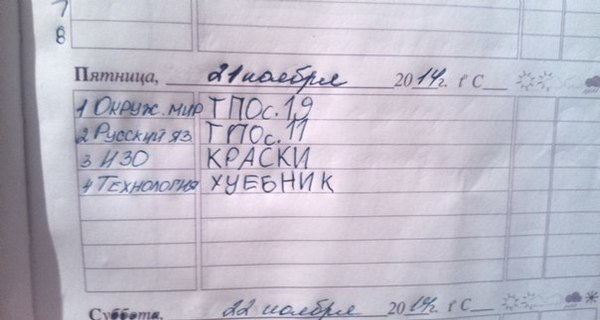 7
8
Пятница, 21 ноября 2014г. t°C
1 Окруж. мир ТПОс.19
2 Русский яз ТПОс.11
3 ИЗО КРАСКИ
4 Технология ХУЕБНИК
Суббота, 22 ноября 2014г. t°C